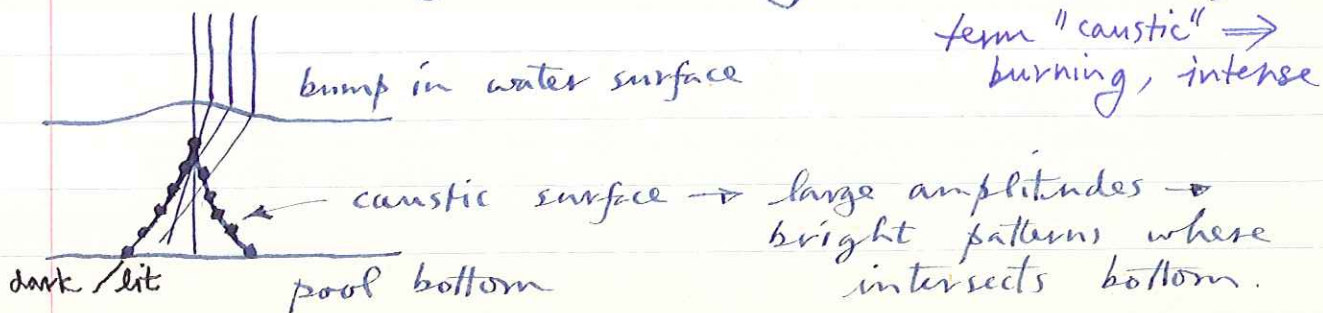 term "caustic" ⇒
burning, intense
bump in water surface
caustic surface → large amplitudes →
bright patterns where
intersects bottom.
dark / lit
pool bottom